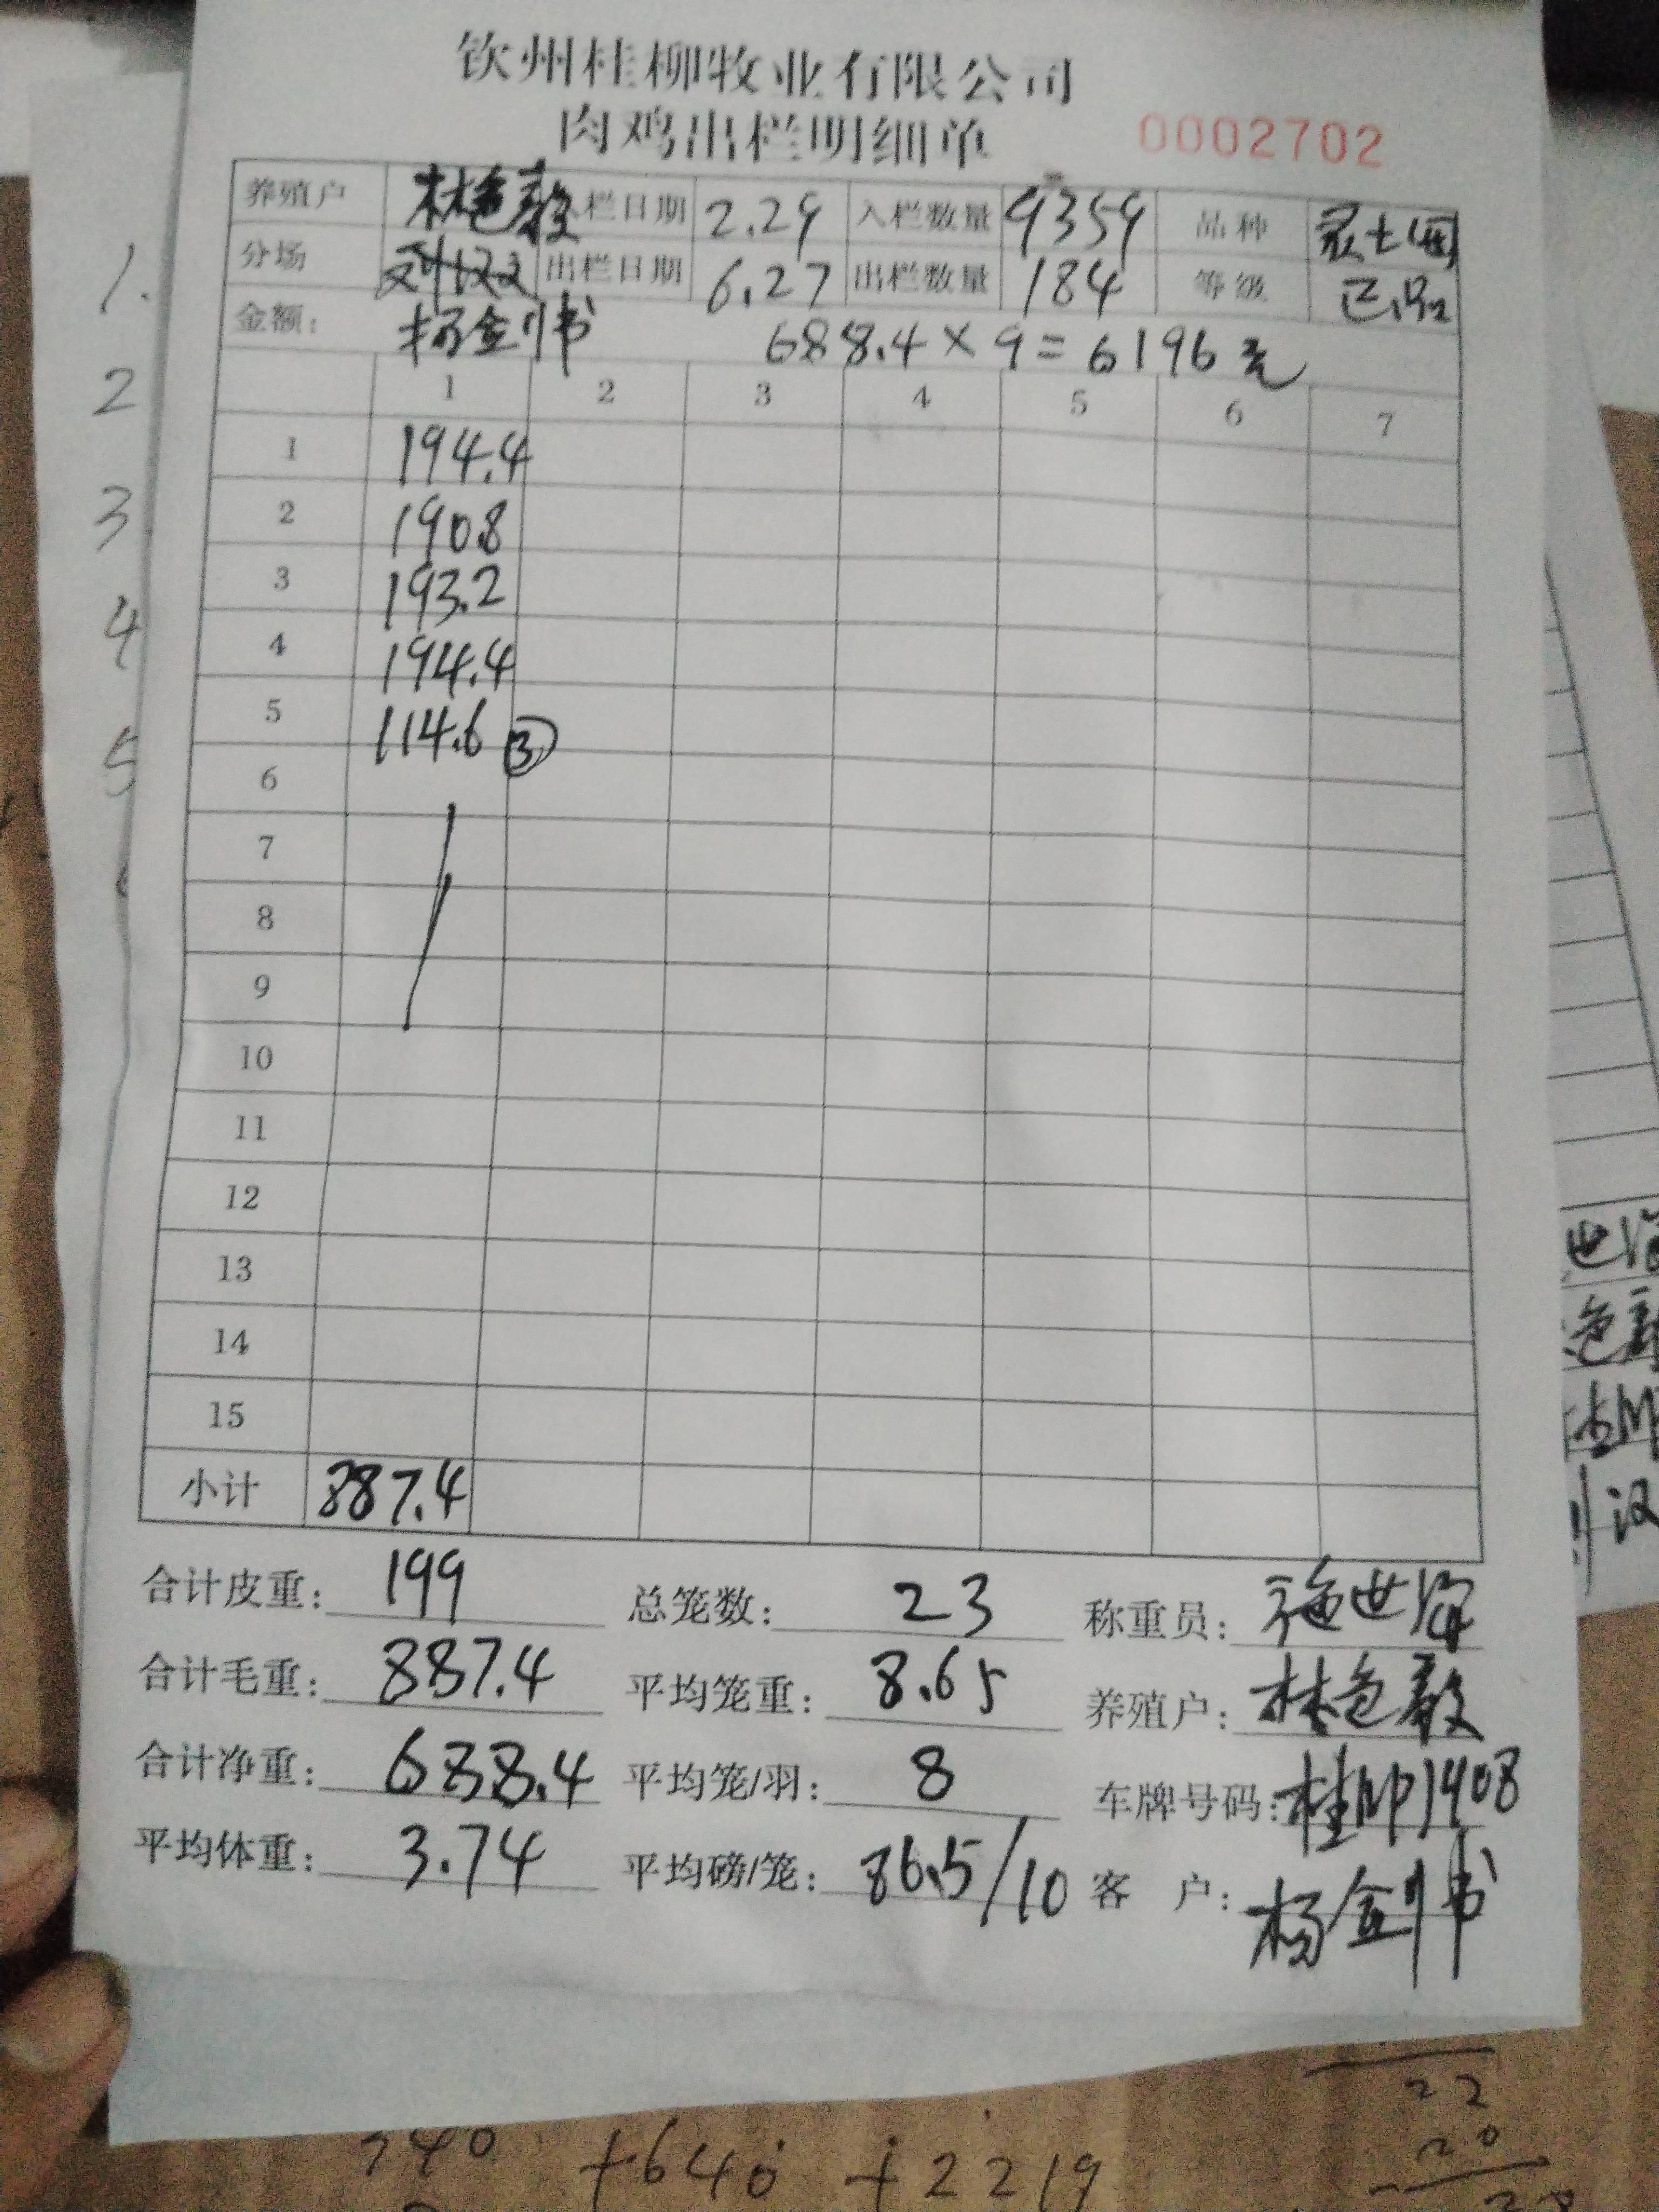 钦州桂柳牧业有限公司
肉鸡出栏明细单 0002702
养殖户 林色毅 栏日期 2.29 入栏数量 9359 品种 灵土
分场 刘汉文 出栏日期 6.27 出栏数量 184 等级 正品
金额: 杨金书 688.4×9=6196元
1 2 3 4 5 6 7
1 194.4
2 190.8
3 193.2
4 194.4
5 114.6 ③
6
7
8
9
10
11
12
13
14
15
小计 887.4
合计皮重: 199 总笼数: 23 称重员: 施世
合计毛重: 887.4 平均笼重: 8.65 养殖户: 林色毅
合计净重: 688.4 平均笼/羽: 8 车牌号码: 桂 1908
平均体重: 3.74 平均磅/笼: 86.5/10 客 户: 杨
1.
2
3
4
5
世
色毅
汉
740 +640 +2219
22
20